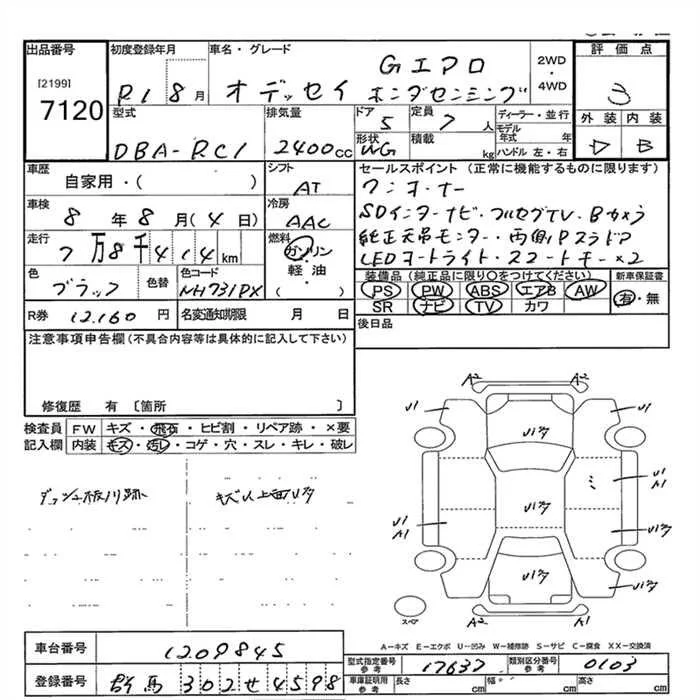 出品番号 初度登録年月 車名・グレード 2WD・4WD 評価点
[2199]
7120
R1 8月 オデッセイ Gエアロ ホンダセンシング
3
型式 排気量 ドア 定員 ディーラー・並行
DBA-RC1 2400cc 5 7人 モデル年式 年
形状 積載 ハンドル 左・右
WG kg
外装 内装
D B
車歴 シフト セールスポイント(正常に機能するものに限ります)
自家用・( ) AT ワンオーナー
車検 冷房 SDインターナビ・フルセグTV・Bカメラ
8年8月(4日) AAC 純正天吊モニター・両側Pスラドア
走行 燃料 LEDオートライト・スマートキー×2
7万8千414km ガソリン・軽油・( )
色 色替 色コード 装備品(純正品に限り○をつけてください) 新車保証書
ブラック NH731PX PS PW ABS エアB AW 有・無
SR ナビ TV カワ
R券 12.160円 名変通知期限 月 日 後日品
注意事項申告欄(不具合内容等は具体的に記入して下さい)
修復歴 有 〔箇所 〕
検査員 FW キズ・飛石・ヒビ割・リペア跡・×要
記入欄 内装 キズ・汚レ・コゲ・穴・スレ・キレ・破レ
A2 A2
U1 U1
U1
A1
U1
A1
A2 A1
スペア
A-キズ E-エクボ U-凹み W-補修跡 S-サビ C-腐食 XX-交換済
車台番号 1209845
型式指定番号 参考 17637 類別区分番号 参考 0103
登録番号 群馬 302 せ 4598
車庫証明用 参考 長さ cm 幅 cm 高さ cm